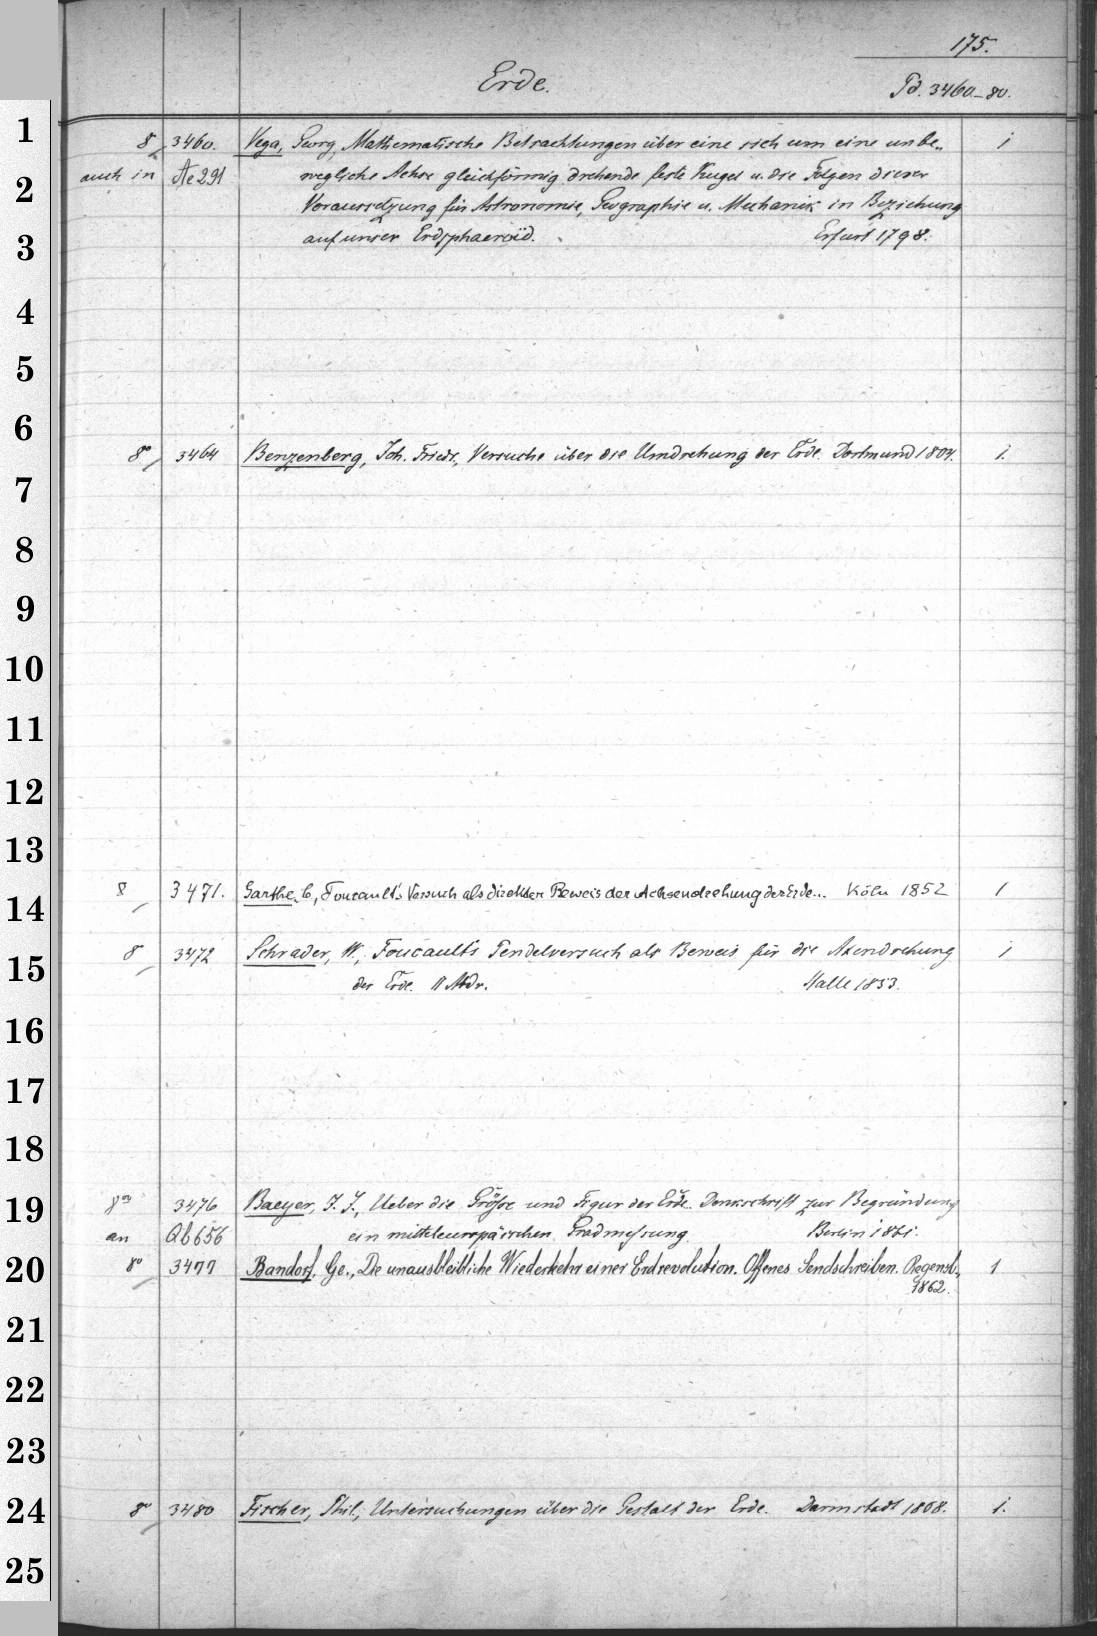 175.
Erde.
Pd. 3460-80.
1
8 3460. Vega, Georg, Mathematische Betrachtungen über eine sich um eine unbe- 1
2
auch in Ae 291 wegliche Achse gleichförmig drehende feste Kugel u. die Folgen dieser
Voraussetzung für Astronomie, Geographie u. Mechanik in Beziehung
3
auf unser Erdsphaeroïd. Erfurt 1798.
4
5
6
8° 3464 Benzenberg, Joh. Friedr., Versuche über die Umdrehung der Erde. Dortmund 1804. 1.
7
8
9
10
11
12
13
8 3471. Garthe, C., Foucault's Versuch als direkter Beweis der Achsendrehung der Erde... Köln 1852 1
14
8 3472 Schrader, W., Foucault's Pendelversuch als Beweis für die Axendrehung 1
15
der Erde. II Abdr. Halle 1853.
16
17
18
19
3476 Baeyer, J. J., Ueber die Größe und Figur der Erde. Denkschrift zur Begründung
an Qb656 ein mitteleuropäischen Gradmessung. Berlin 1861.
20
8° 3477 Bandorf, Ge., Die unausbleibliche Wiederkehr einer Erdrevolution. Offenes Sendschreiben. Regensb., 1
1862.
21
22
23
24
8° 3480 Fischer, Phil., Untersuchungen über die Gestalt der Erde. Darmstadt 1868. 1.
25